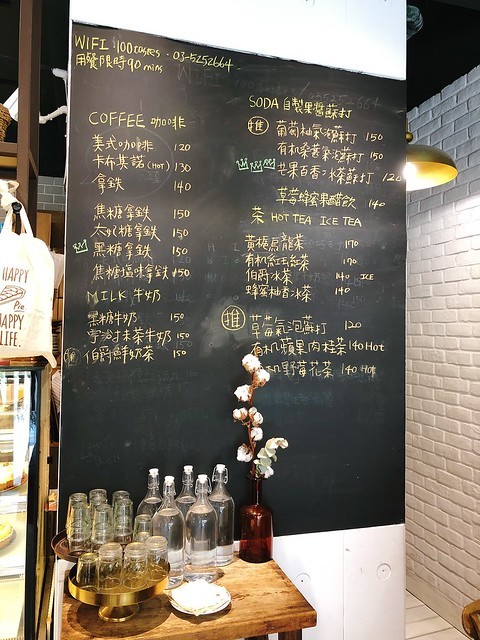 WIFI 100tastes - 03-5252664
用餐限時90 mins
COFFEE 咖啡
美式咖啡 120
卡布其諾(Hot) 130
拿鐵 140
焦糖拿鐵 150
太妃糖拿鐵 150
黑糖拿鐵 150
焦糖塩味拿鐵 150
MILK 牛奶
黑糖牛奶 150
宇治抹茶牛奶 150
推 伯爵鮮奶茶 150
SODA 自製果醬蘇打
推 葡萄柚氣泡蘇打 150
有機桑葚氣泡蘇打 150
芒果百香冰茶蘇打 120
草莓蜂蜜果醋飲 140
茶 HOT TEA ICE TEA
黃梔烏龍茶 190
有機紅玉紅茶 190
伯爵冰茶 140 ICE
蜂蜜柚香冰茶 140
推 草莓氣泡蘇打 120
有机蘋果肉桂茶 140 Hot
有机野莓花茶 140 Hot
HAPPY
Pie
HAPPY
LIFE.